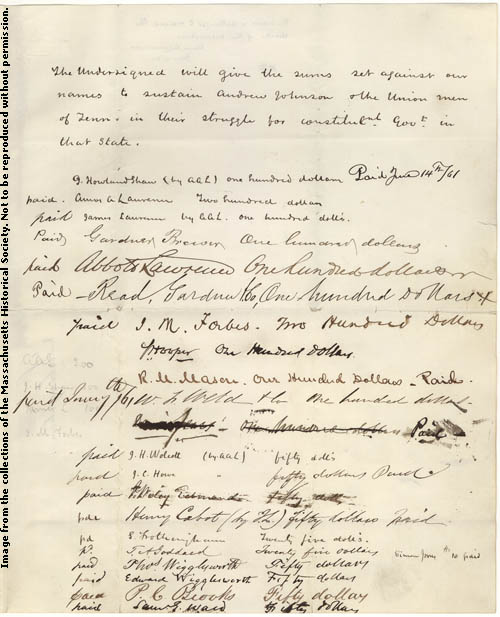 Image from the collections of the Massachusetts Historical Society. Not to be reproduced without permission.
The Undersigned will give the sums set against our
names to sustain Andrew Johnson & the Union men
of Tenn: in their struggle for constitutnal Govt. in
that State.
J. Howland Shaw (by AAL) one hundred dollars Paid June 14th/61
paid. Amos A Lawrence Two hundred dollars
paid James Lawrence by AAL. one hundred dolls.
Paid Gardner Brewer One hundred dollars
paid Abbott Lawrence One hundred dollars
Paid Read, Gardner & Co, One hundred Dollars
paid J. M. Forbes. Two Hundred Dollars
Hooper One Hundred dollars.
R. M. Mason. One Hundred Dollars - Paid.
paid W. F. Weld & Co One hundred dollars
One hundred dollars Paid
paid J. H. Wolcott (by AAL) fifty dolls
paid J. C. Howe " fifty dollars Paid
paid fifty dolls
pd Henry Cabot Fifty dollars paid
pd S. Frothingham Twenty five dolls.
T. Goddard Twenty five dollars paid
paid Thos Wigglesworth Fifty dollars
paid Edward Wigglesworth Fifty dollars
paid P. C. Brooks Fifty dollars
paid Saml G. Ward Fifty dollars